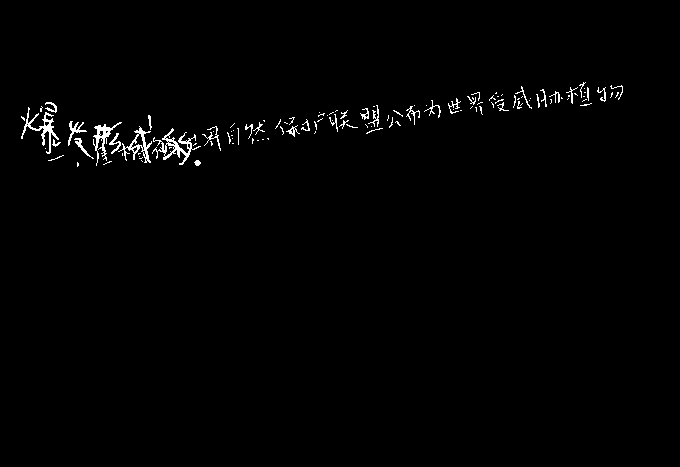 世界自然保护联盟公布为世界受威胁植物